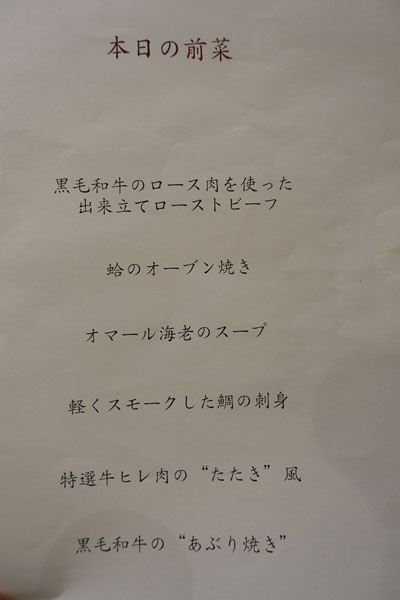 本日の前菜
黒毛和牛のロース肉を使った
出来立てローストビーフ
蛤のオーブン焼き
オマール海老のスープ
軽くスモークした鯛の刺身
特選牛ヒレ肉の“たたき”風
黒毛和牛の“あぶり焼き”